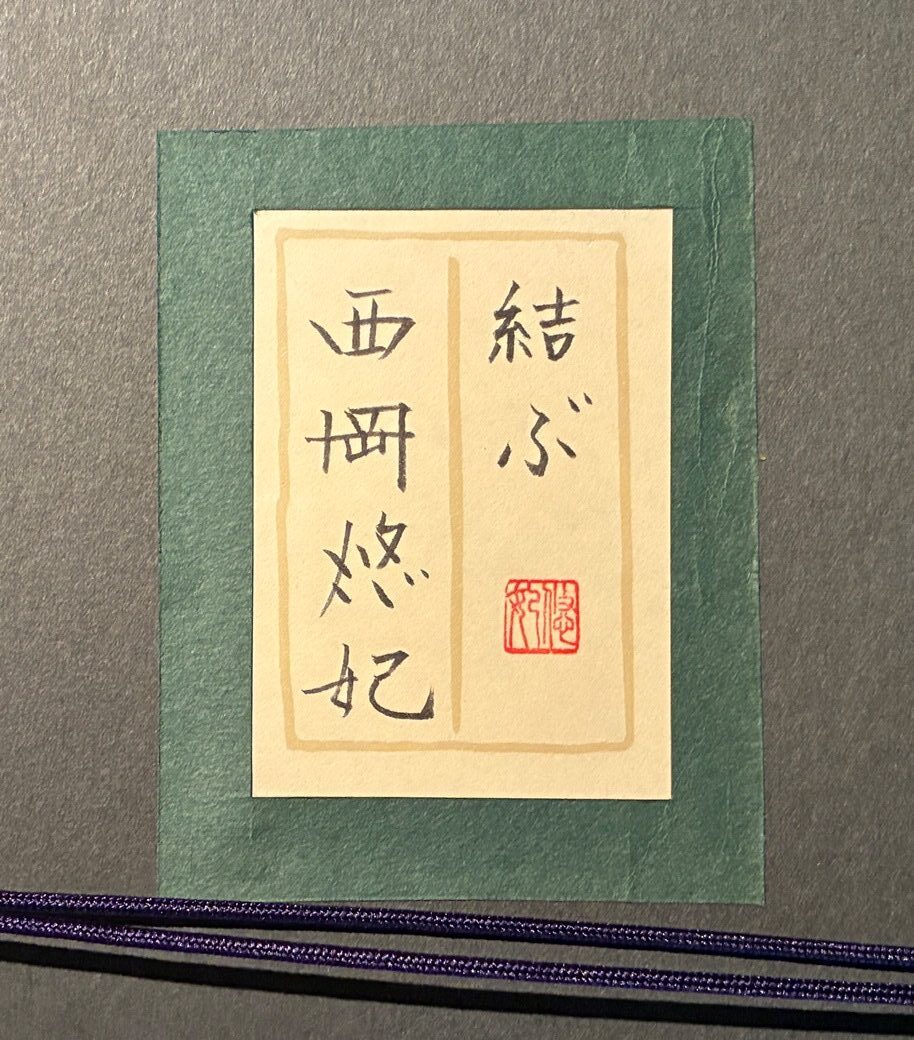 結ぶ
悠妃
西岡悠妃